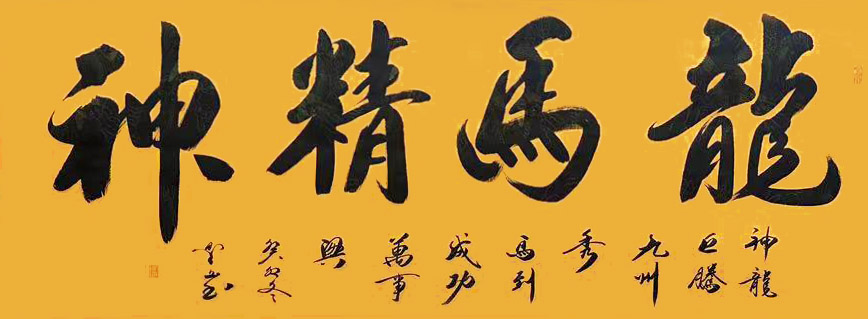 龍馬精神
神龍
騰
九州
秀
馬到
成功
萬事
興
癸卯冬